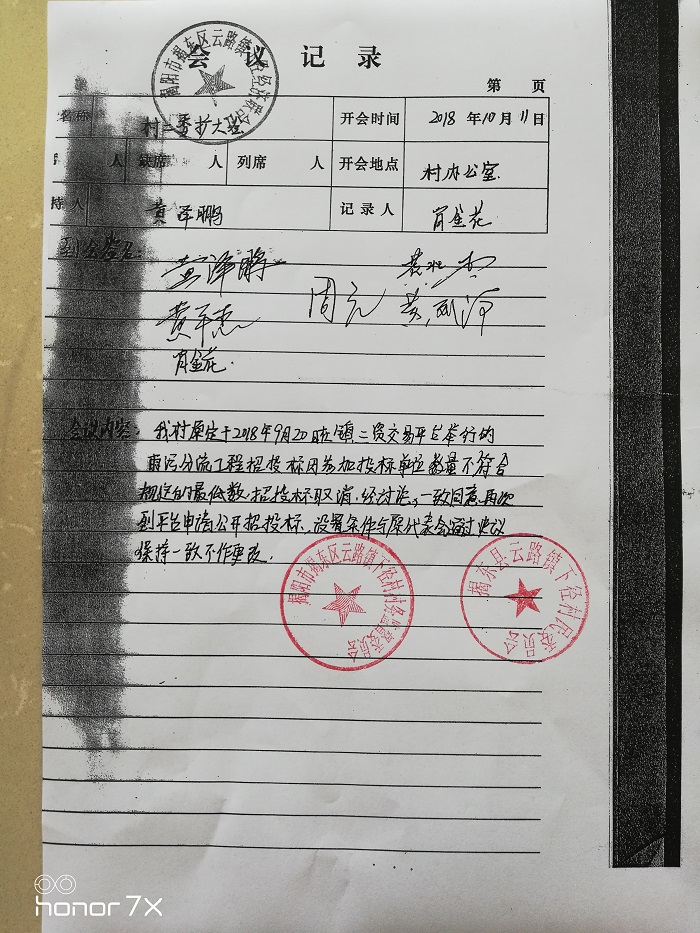 会 议 记 录
第 页
名称 村二委扩大会 开会时间 2018 年 10 月 11 日
人 缺席 人 列席 人 开会地点 村办公室
持 人 黄泽鹏 记 录 人 肖金花
到会签名:
黄泽鹏
周
肖金花.
会议内容: 我村原定于2018年9月20日在镇三资交易平台举行的
雨污分流工程招投标因参加投标单位数量不符合
规定的最低数,招投标取消,经讨论,一致同意再次
到平台申请公开招投标,设置条件与原代表会通过决议
保持一致不作更改.
揭阳市揭东区云路镇下径村村务监督委员会
揭东县云路镇下径村民委员会
honor 7X